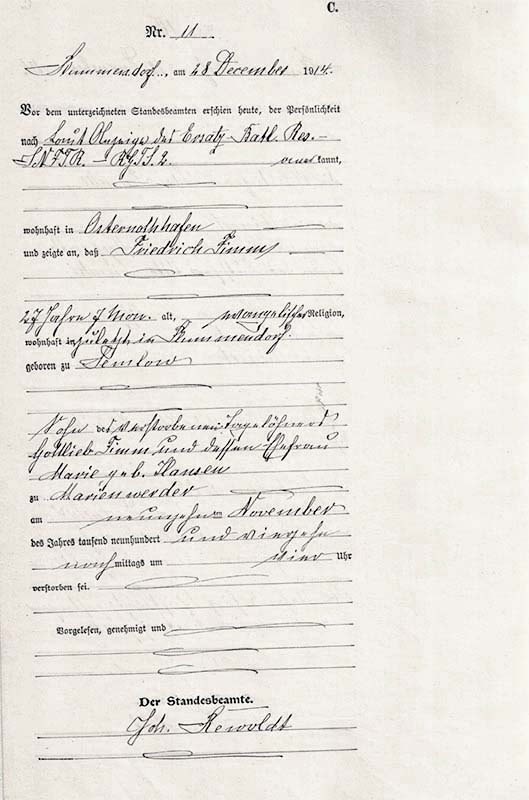 C.
Nr. 11
Stummersdorf, am 28 December 1914.
Vor dem unterzeichneten Standesbeamten erschien heute, der Persönlichkeit
nach Laut Anzeige des Ersatz-Batl. Res.-
I.N.F.T.R. - RGTS. 2. kannt,
wohnhaft in Osternothhafen
und zeigte an, daß Friedrich Timm
27 Jahre 7 Mon. alt, evangelischer Religion,
wohnhaft in zuletzt in Stummendorf.
geboren zu Temlow
Sohn des verstorbenen Tagelöhners
Gottlieb Timm und dessen Ehefrau
Marie geb. Klansen
zu Marienwerder
am neunzehn November
des Jahres tausend neunhundert und vierzehn
nachmittags um vier Uhr
verstorben sei.
Vorgelesen, genehmigt und
Der Standesbeamte.
Joh. Rewoldt